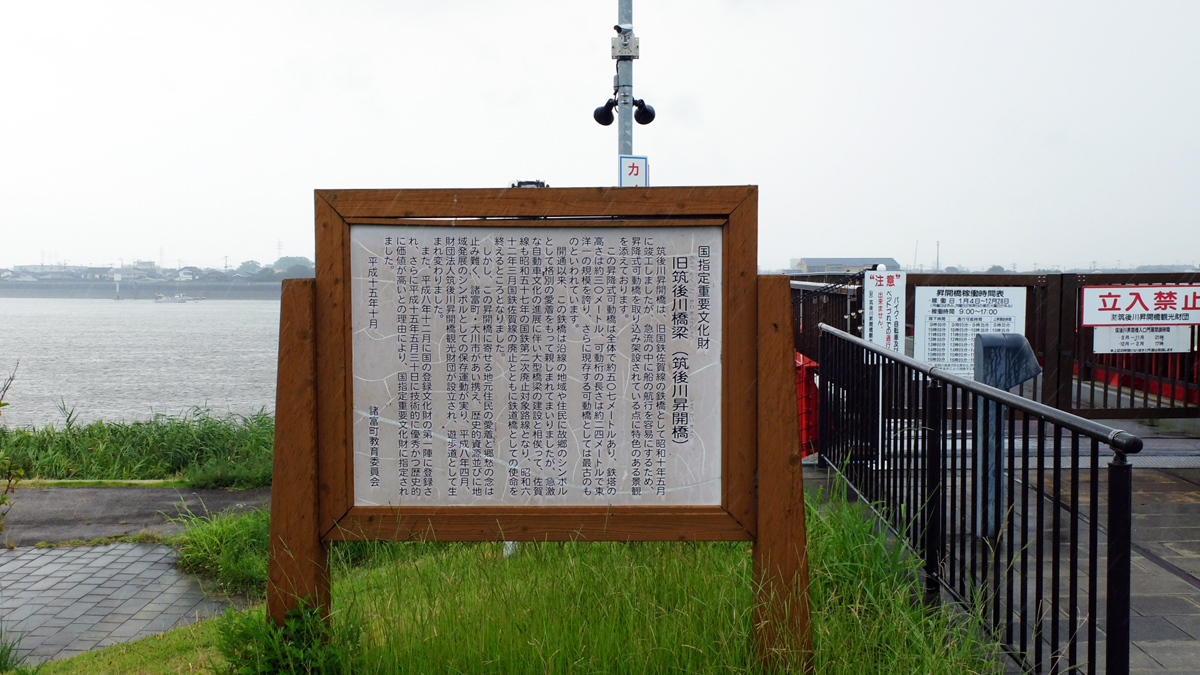 国指定重要文化財
旧筑後川橋梁（筑後川昇開橋）
筑後川昇開橋は、旧国鉄佐賀線の鉄橋として昭和十年五月
に竣工しましたが、急流の中に船の航行を容易にするため、
昇降式可動橋を取り込み架設されている点に特色のある景観
を添えております。
この昇降式可動橋は全体で約五〇七メートルあり、鉄塔の
高さは約三〇メートル、可動桁の長さは約二四メートルで東
洋一の規模を誇り、さらに現存する可動橋としては最古のも
のといわれます。
開通以来、この鉄橋は沿線の地域や住民に故郷のシンボル
として格別の愛着をもって親しまれてまいりましたが、急激
な自動車文化の進展に伴い大型橋梁の建設と相俟って、佐賀
線も昭和五十七年の国鉄第二次廃止対象路線となり、昭和六
十二年三月国鉄佐賀線の廃止とともに鉄道橋としての使命を
終えるところとなりました。
しかし、この昇開橋に寄せる地元住民の愛着と郷愁の念は
止み難く、諸富町・大川市が相携え、歴史的資源並びに地
域発展のシンボルとしての保存運動が実り、平成八年四月、
財団法人筑後川昇開橋観光財団が設立され、遊歩道として生
まれ変わりました。
また、平成八年十二月に国の登録文化財の第一陣に登録さ
れ、さらに平成十五年五月三十日に技術的に優秀かつ歴史的
に価値が高いとの理由により、国指定重要文化財に指定され
ました。
平成十五年十月
諸富町教育委員会
カ
注意
バイク・自転車又は
ペットづれでの通行
出来ません。
昇開橋稼働時間表
稼働日 1月4日〜12月28日
稼働時間 9:00〜17:00
立入禁止
筑後川昇開橋観光財団